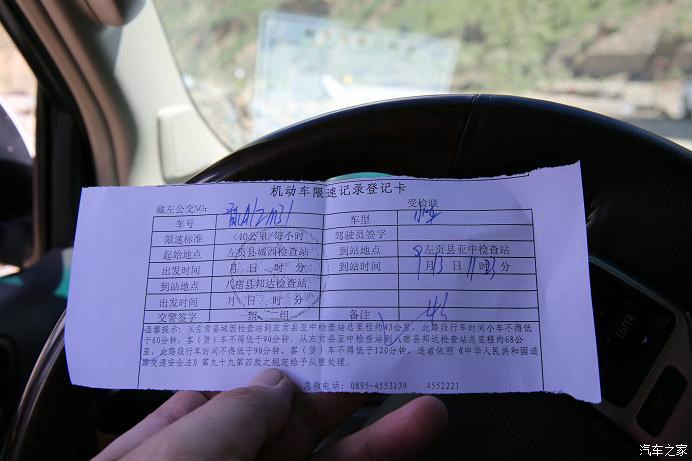 机动车限速记录登记卡
藏左公交NO: 受检联
车号 车型 小车
限速标准 <40公里/每小时 驾驶员签字
起始地点 左贡县城西检查站 到站地点 左贡县亚中检查站
出发时间 月 日 时 分 到站时间 9月13日11时23分
到站地点 八宿县邦达检查站
出发时间 月 日 时 分
交警签字 一组、二组 备注
温馨提示：从左贡县城西检查站到左贡县亚中检查站总里程约43公里，此路段行车时间小车不得低
于60分钟，客（货）车不得低于90分钟。从左贡县亚中检查站到八宿县邦达检查站总里程约68公
里，此路段行车时间不得低于90分钟，客（货）车不得低于120分钟，违者依照《中华人民共和国道
路交通安全法》第九十九第四款之规定给予从重处理。
急救电话：0895-4553139 4552221
ENTER
汽车之家